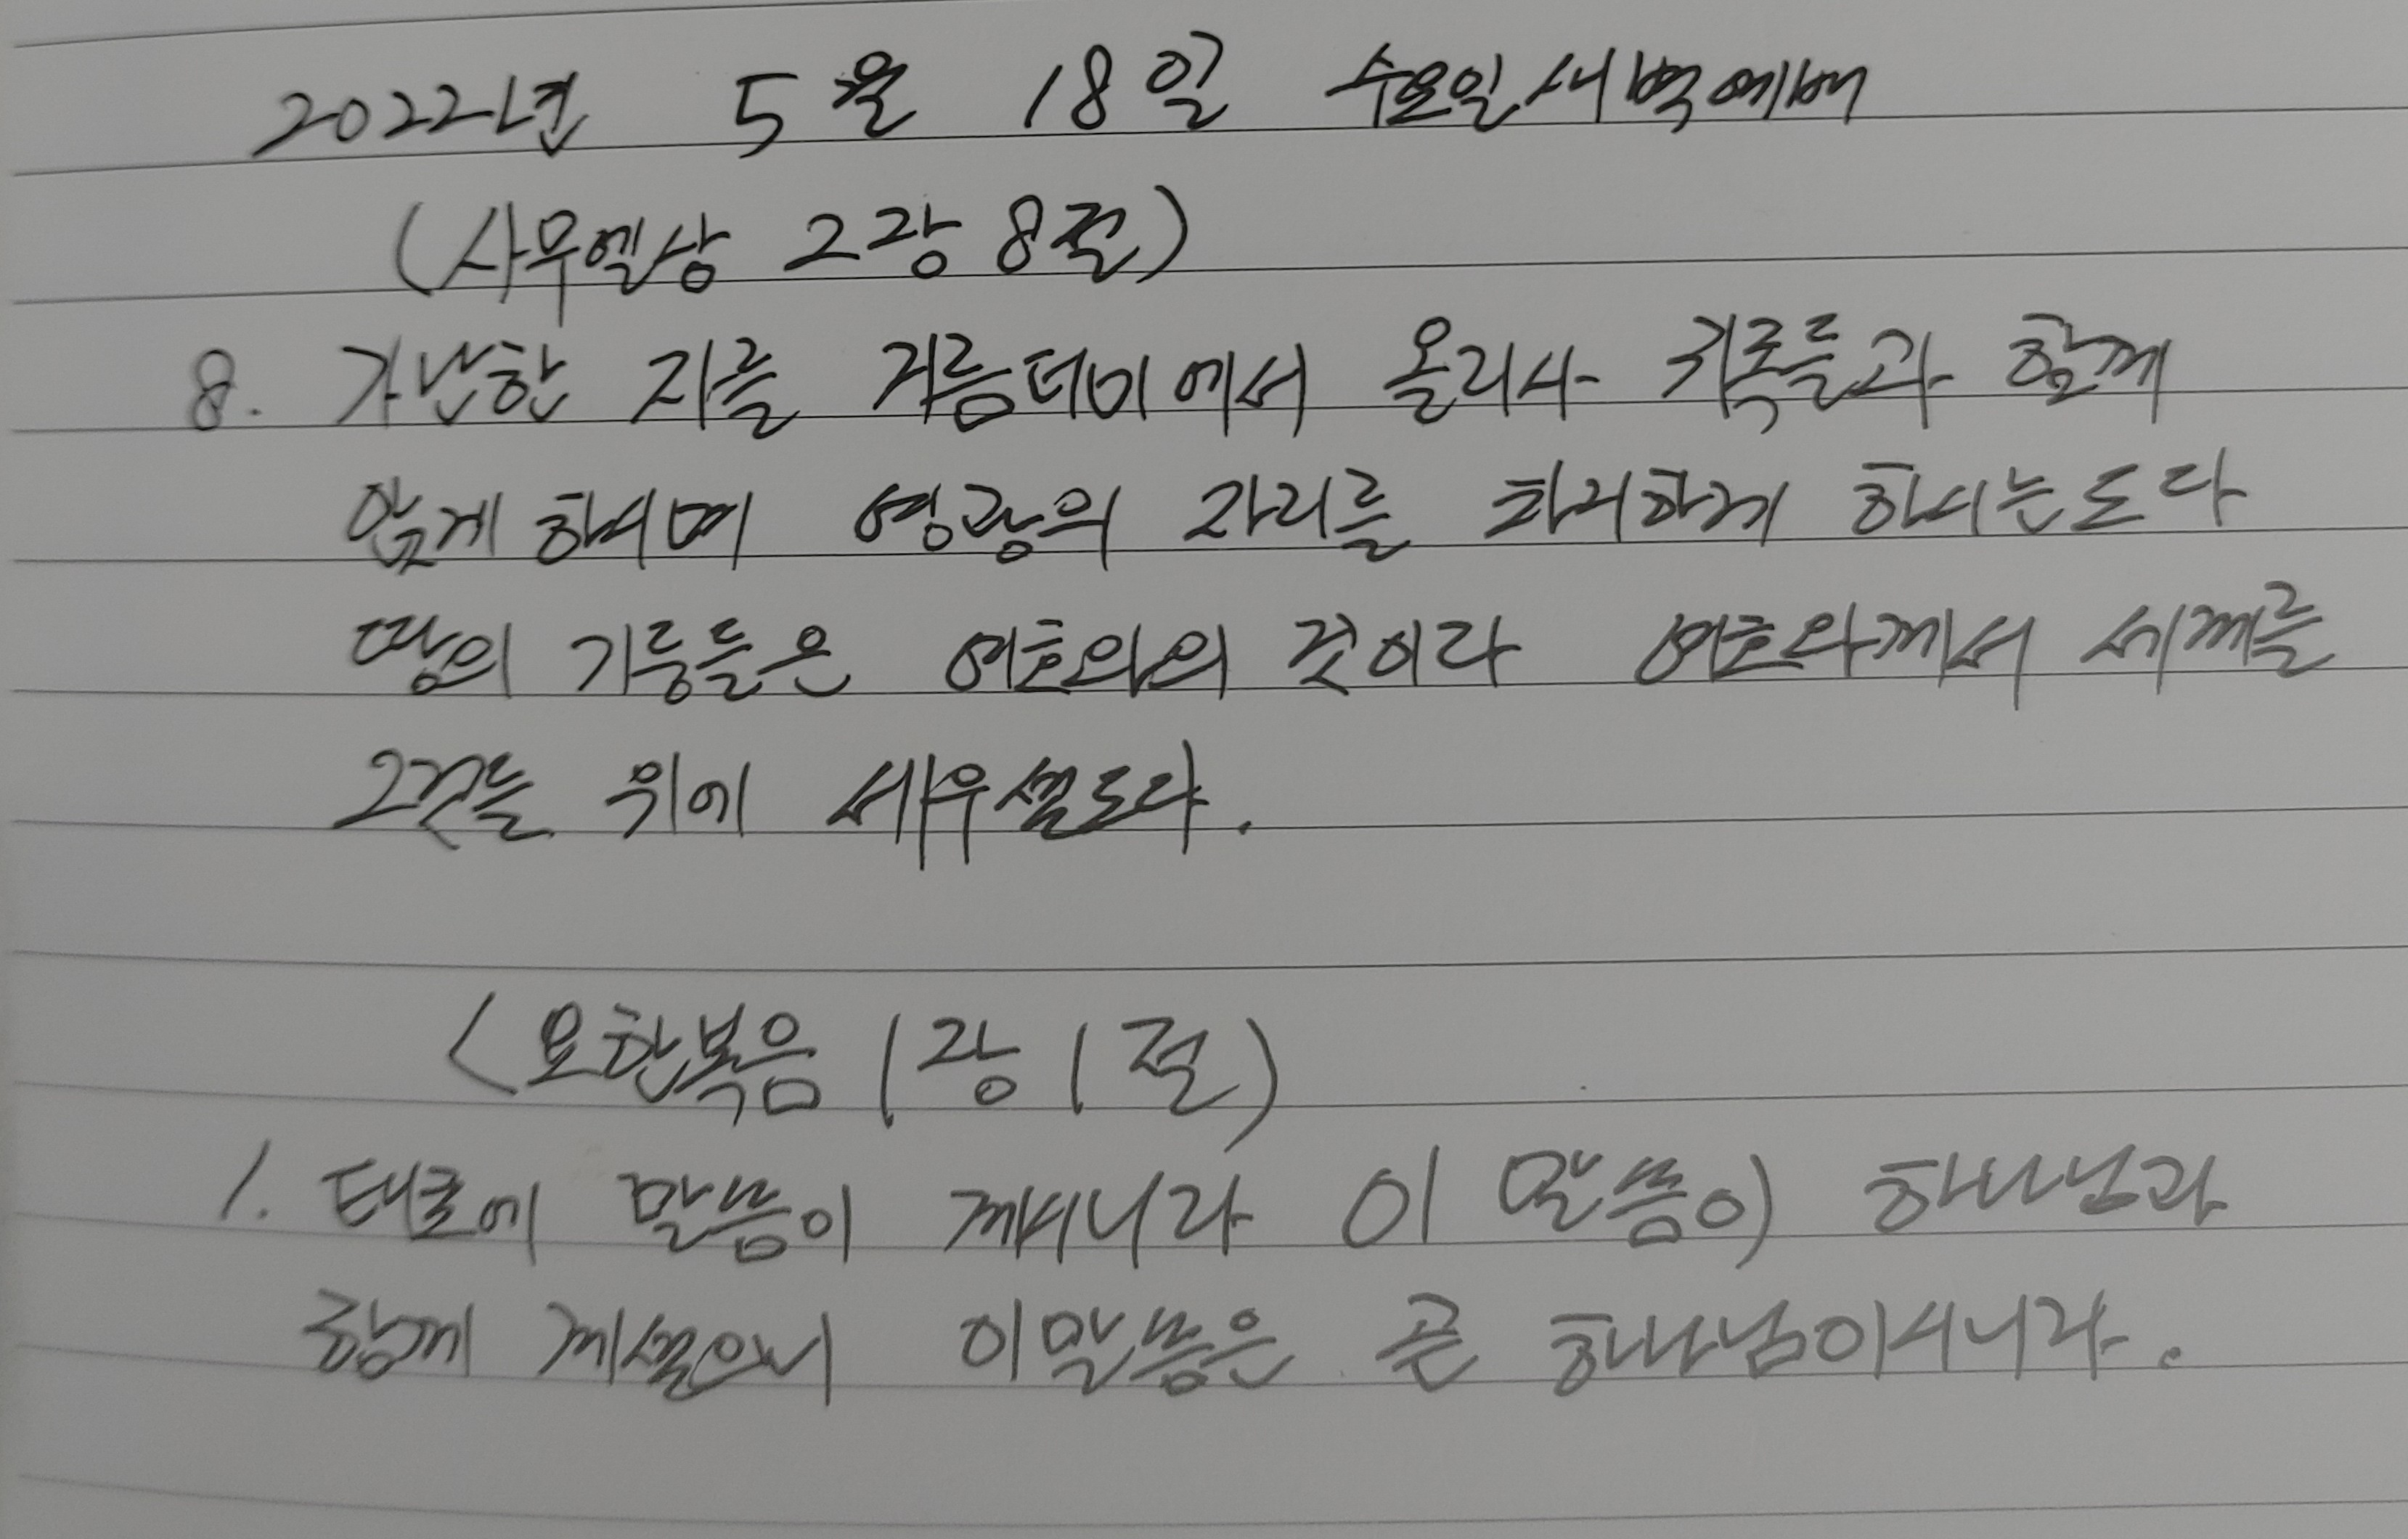 2022년 5월 18일 수요일새벽예배
(사무엘상 2장 8절)
8. 가난한 자를 거름더미에서 올리사 귀족들과 함께
앉게 하시며 영광의 자리를 차지하게 하시는도다
땅의 기둥들은 여호와의 것이라 여호와께서 세계를
그것들 위에 세우셨도다.
<요한복음 1장 1절)
1. 태초에 말씀이 계시니라 이 말씀이 하나님과
함께 계셨으니 이말씀은 곧 하나님이시니라.